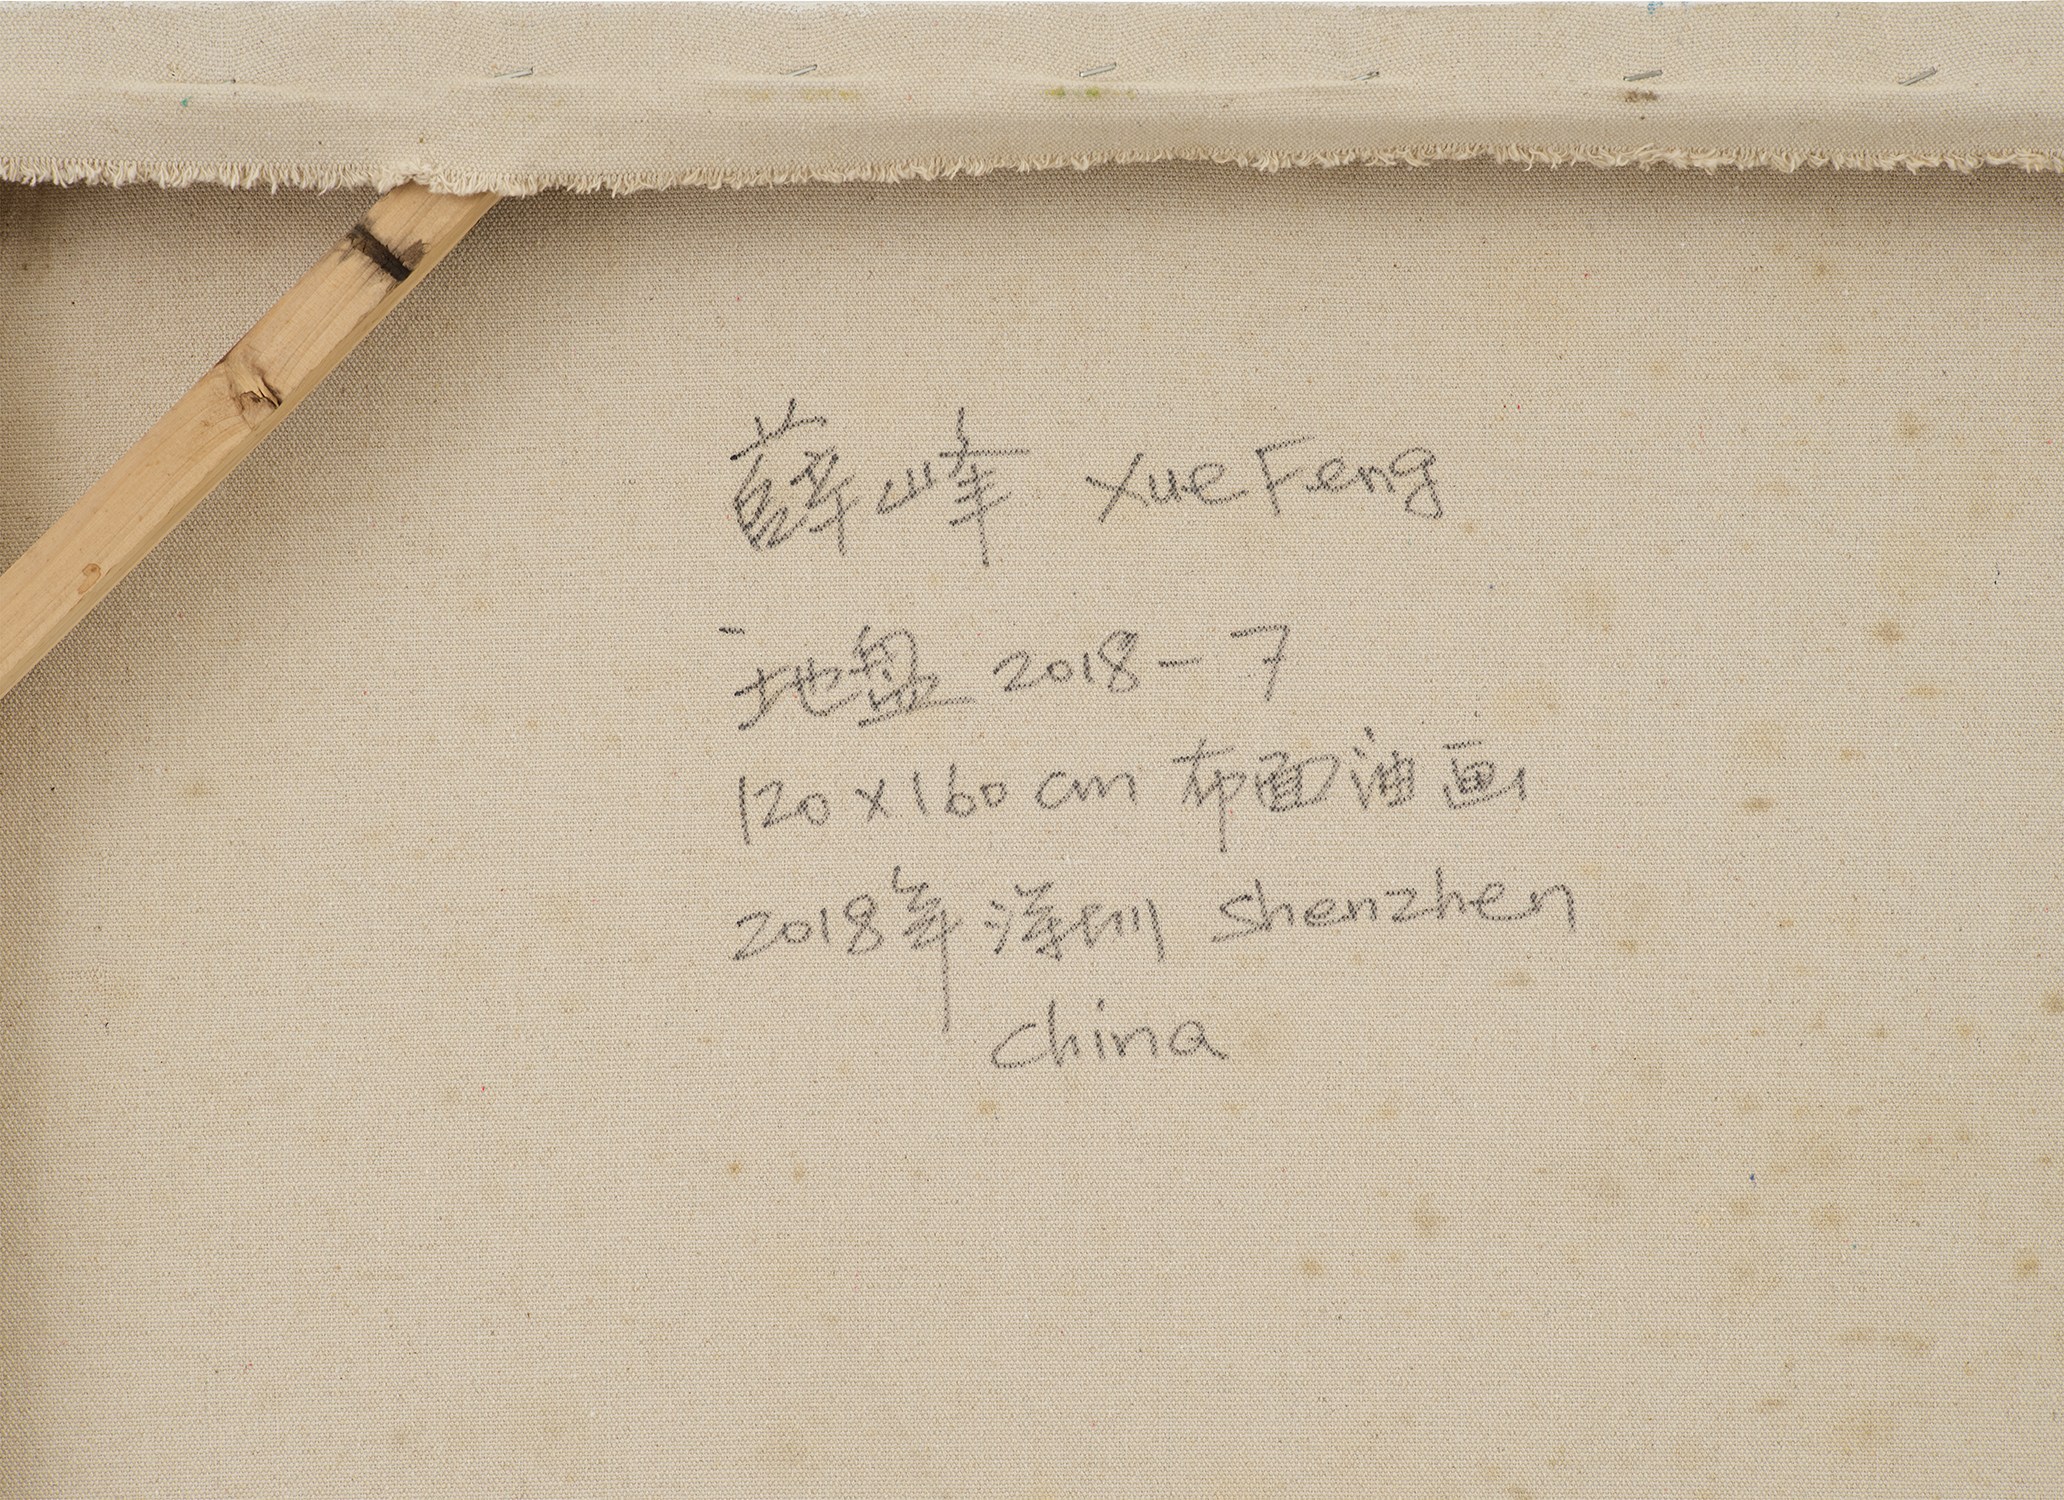 薛峰 XueFeng
地盘 2018-7
120x160cm 布面油画
2018年深圳 Shenzhen
China